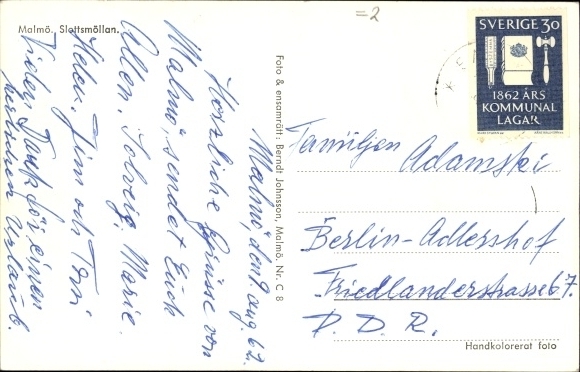 =2
Malmö. Slottsmöllan.
SVERIGE 30
1862 ÅRS
KOMMUNAL
LAGAR
Foto & ensamrätt: Berndt Johnsson, Malmö. Nr. C 8
Malmö, den 9. Aug. 62.
Herzliche Grüsse von
Malmö, sendet Euch
Allen, Solveig, Marie.
Helen, Jim och Toni
Vielen Dank für einen
Urlaub.
Familjen Adamski
Berlin-Adlershof
Friedlanderstrasse 67.
D. D. R.
Handkolorerat foto